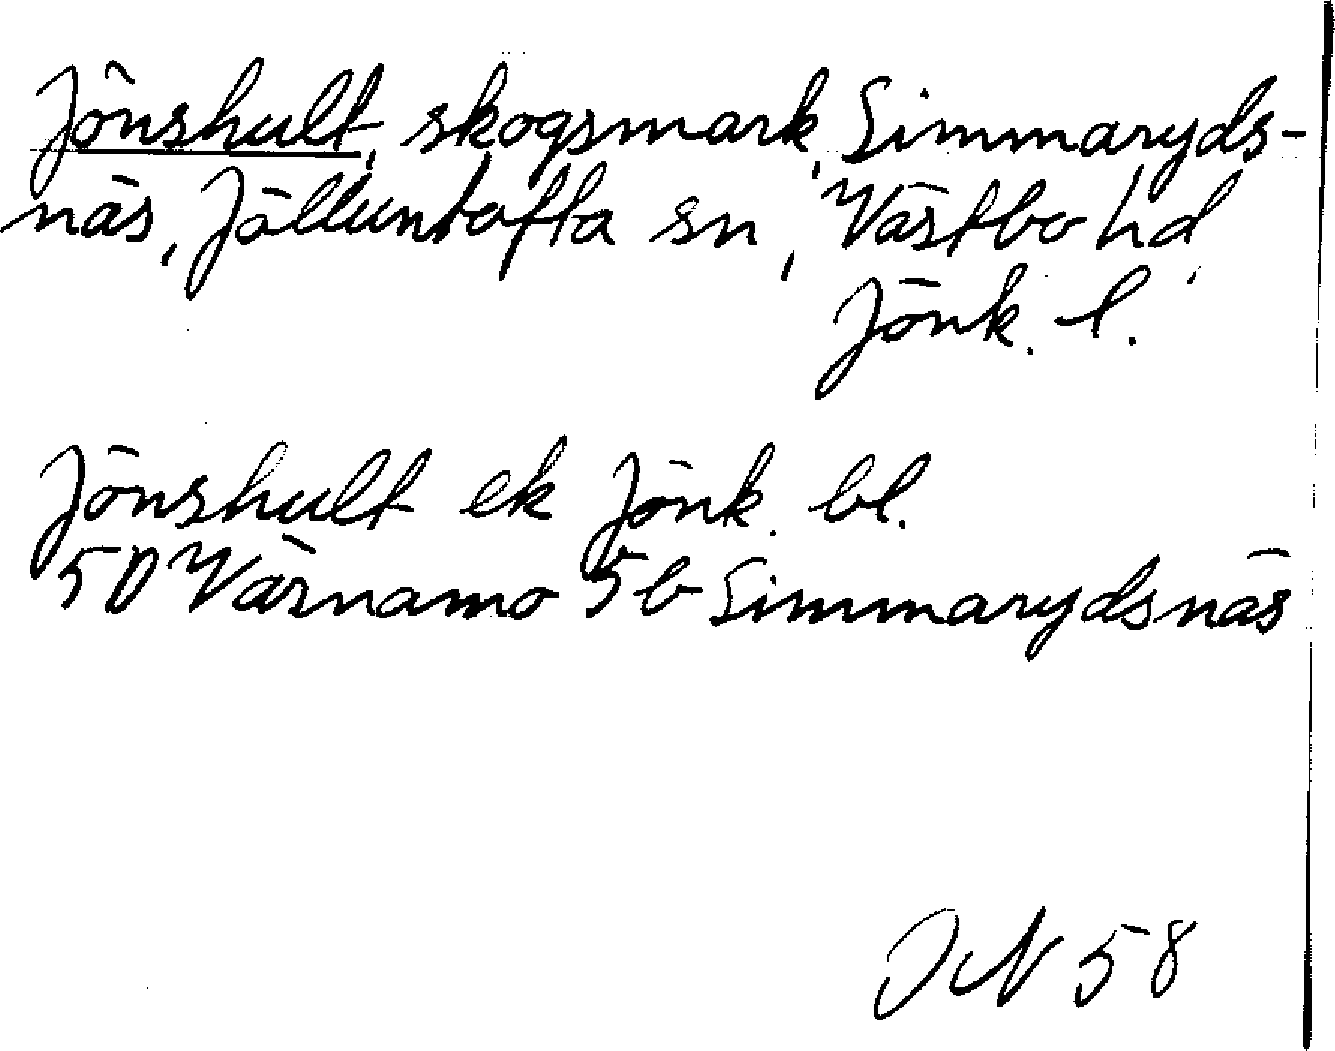 Jönshult, skogsmark, Simmaryds-
näs, Jälluntofta sn, Västbo hd,
Jönk. l.
Jönshult ek Jönk. bl.
5D Värnamo 5b Simmarydsnäs
58